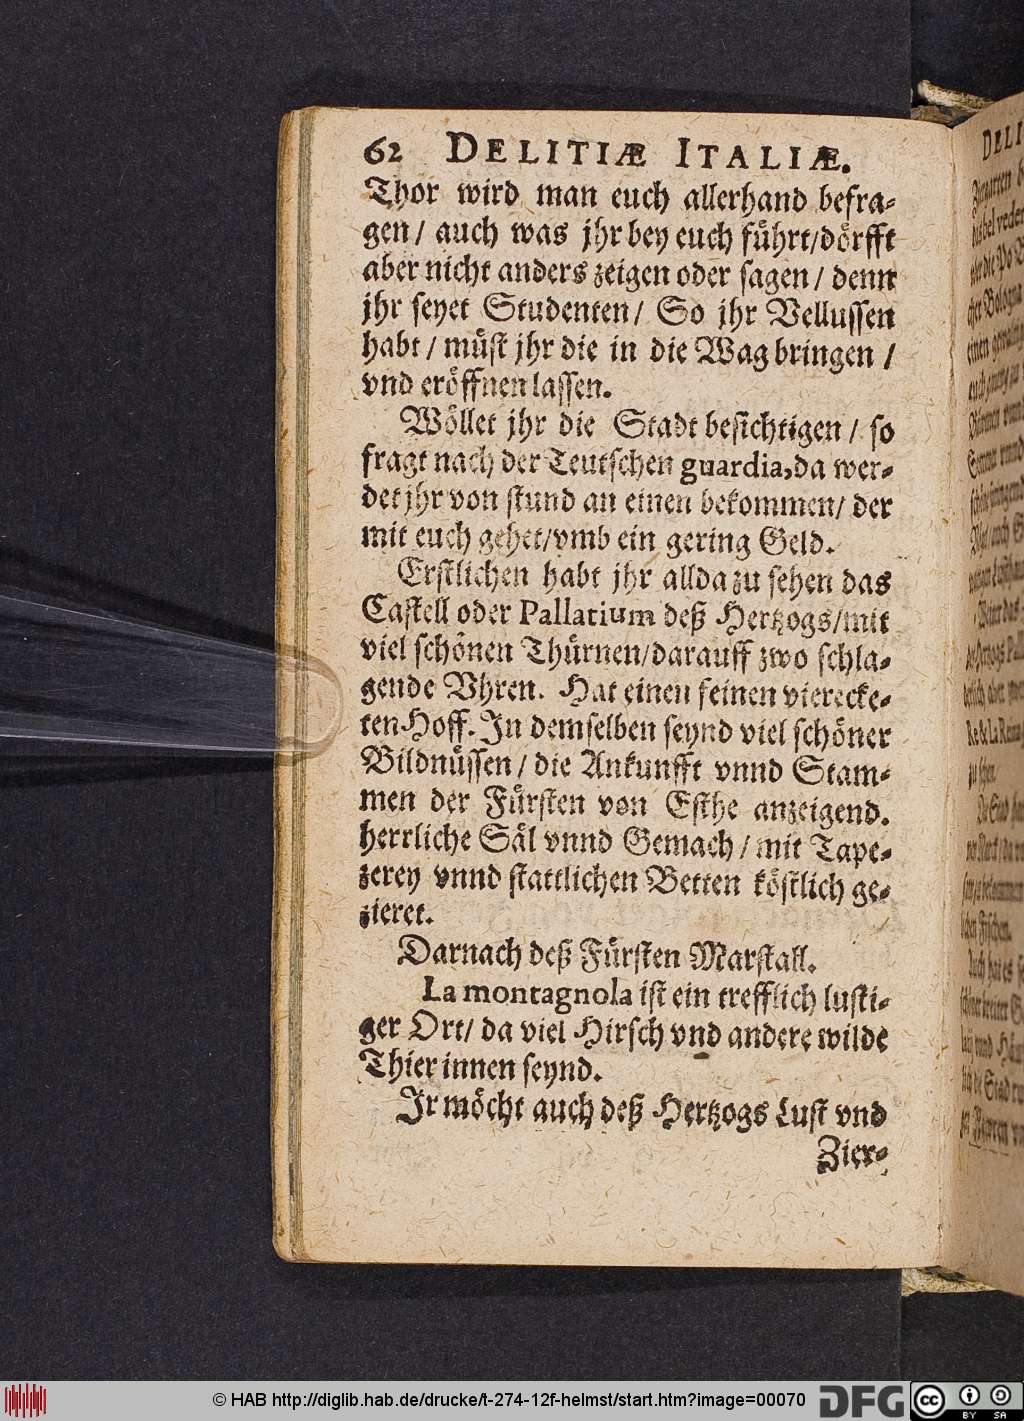 62 DELITIÆ ITALIÆ.
Thor wird man euch allerhand befra-
gen / auch was jhr bey euch führt / dörfft
aber nicht anders zeigen oder sagen / denn
jhr seyet Studenten / So jhr Vellussen
habt / müst jhr die in die Wag bringen /
vnd eröffnen lassen.
Wöllet jhr die Stadt besichtigen / so
fragt nach der Teutschen guardia, da wer-
det jhr von stund an einen bekommen / der
mit euch gehet / vmb ein gering Geld.
Erstlichen habt jhr allda zu sehen das
Castell oder Pallatium deß Hertzogs / mit
viel schönen Thürnen / darauff zwo schla-
gende Vhren. Hat einen feinen vierecke-
ten Hoff. In demselben seynd viel schöner
Bildnüssen / die Ankunfft vnnd Stam-
men der Fürsten von Esthe anzeigend.
herrliche Säl vnnd Gemach / mit Tape-
zerey vnnd stattlichen Betten köstlich ge-
zieret.
Darnach deß Fürsten Marstall.
La montagnola ist ein trefflich lusti-
ger Ort / da viel Hirsch vnd andere wilde
Thier innen seynd.
Ir möcht auch deß Hertzogs Lust vnd
Zier-
DELI
© HAB http://diglib.hab.de/drucke/t-274-12f-helmst/start.htm?image=00070
DFG
cc
BY SA